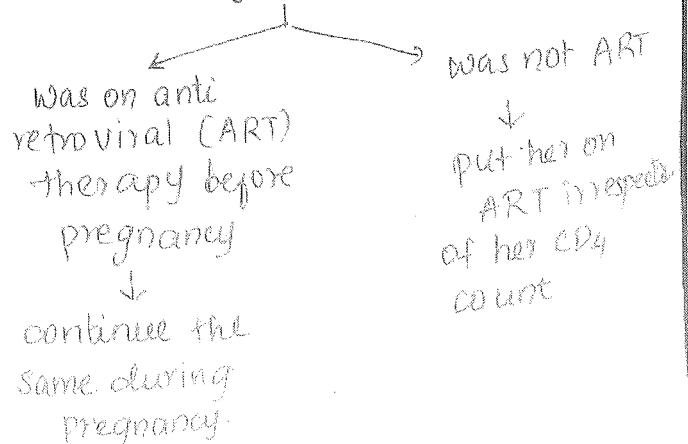 Was on anti
retroviral (ART)
therapy before
pregnancy
continue the
same during
pregnancy.
was not ART
put her on
ART irrespecte
of her CD4
count